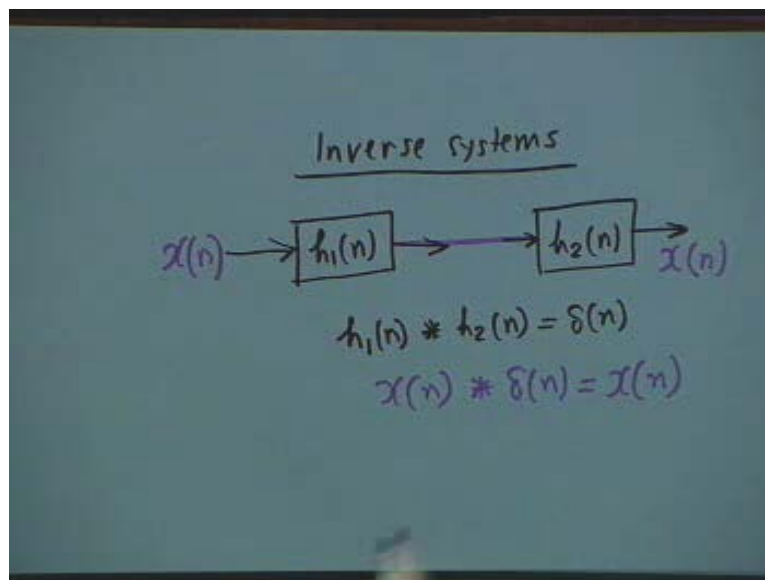 Inverse systems
x(n) h₁(n) h₂(n) x(n)
h₁(n) * h₂(n) = δ(n)
x(n) * δ(n) = x(n)